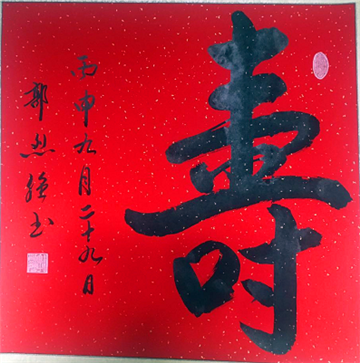 壽
丙申九月二十九日
郭烈强书